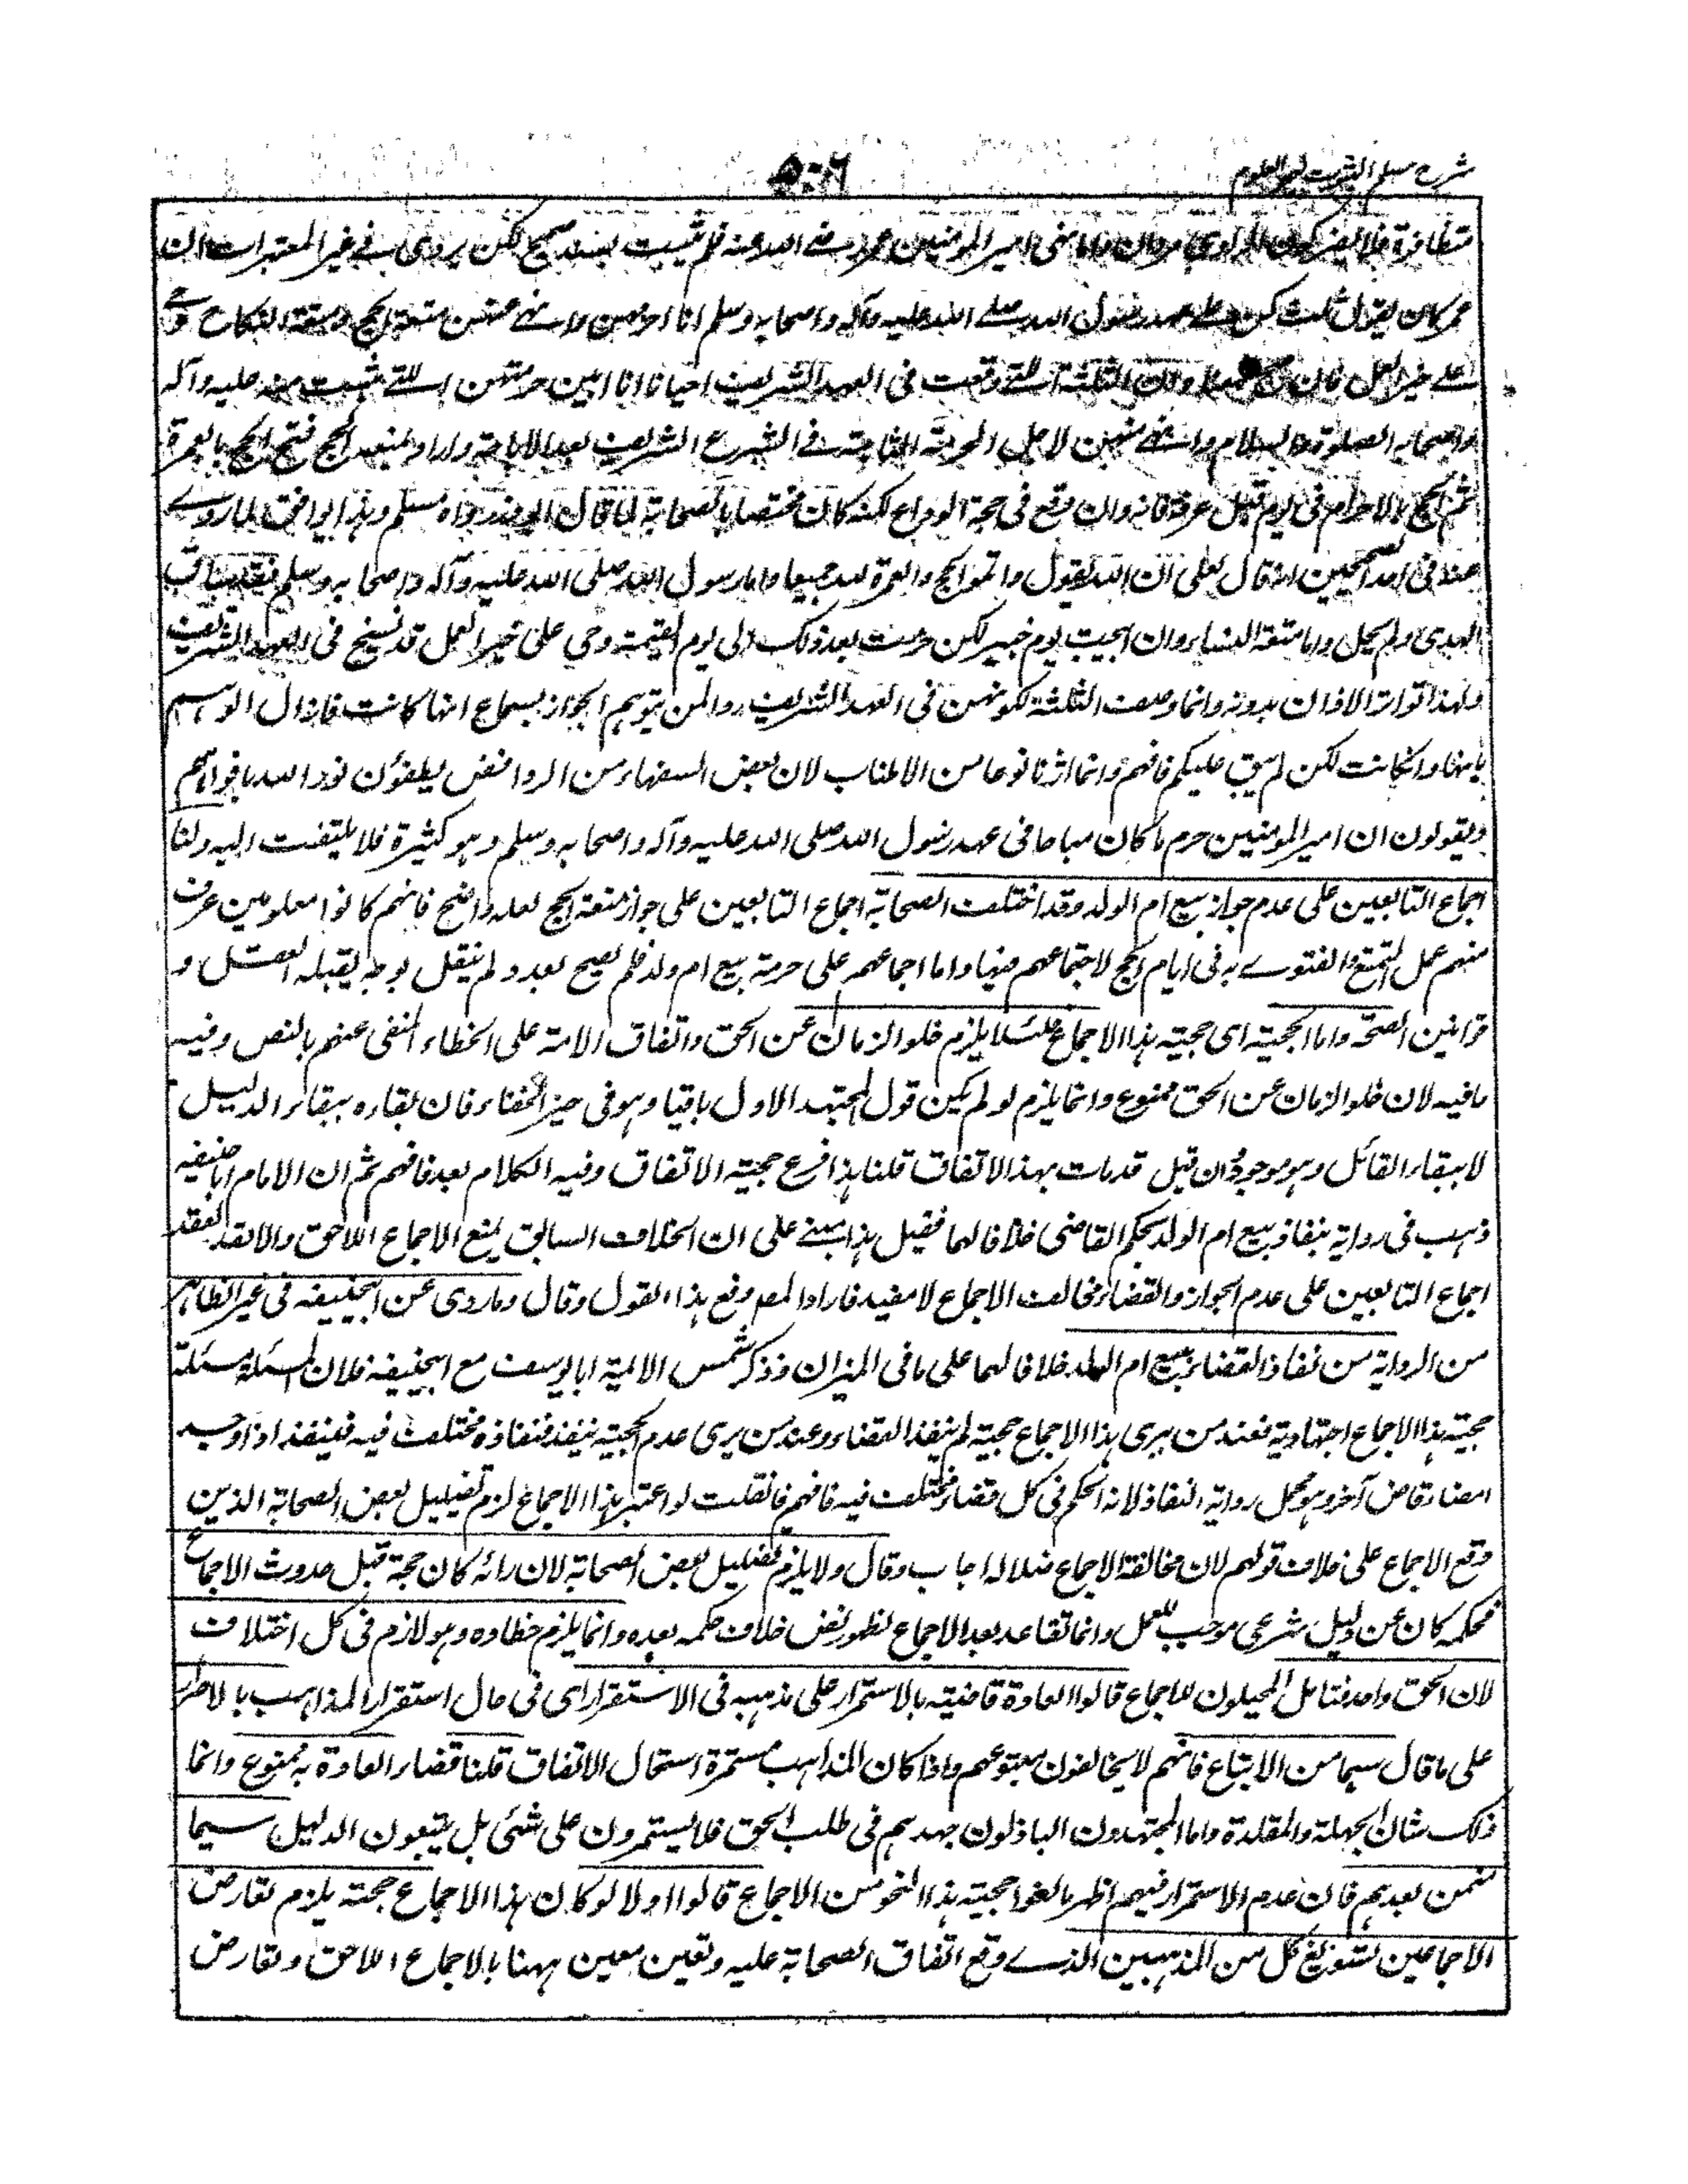 شرح مسلم الثبوت لبحر العلوم
٥٠٦
متظافرة فلا يضر كون الراوى مروان واما نهى امير المؤمنين عمر رضى الله عنه فلم يثبت بسند صحيح لكن يروى فى غير المعتبرات ان
عمر كان يقول ثلث كن على عهد رسول الله صلى الله عليه وآله واصحابه وسلم انا احرمهن وانهى عنهن متعة الحج ومتعة النكاح وحى
على خير العمل فان الثلثة التى وقعت فى العهد الشريف احيانا انا ابين حرمتهن التى ثبت منه عليه وآله
واصحابه الصلوة والسلام وانهى عنهن لاجل الحرمة الثابتة فى الشرع الشريف بعد الاباحة واراد بمتعة الحج فسخ الحج بالعمرة
ثم الحج بالاحرام فى يوم قبل عرفة فانه وان وقع فى حجة الوداع لكنه كان مختصا بالصحابة لما قال ابو ذر رواه مسلم وهذا يوافق لما روى
عنه فى احد الصحيحين انه قال لعلى ان الله يقول واتموا الحج والعمرة لله جميعا واما رسول الله صلى الله عليه وآله واصحابه وسلم فقد ساق
الهدى ولم يحل واما متعة النساء وان ابيحت يوم خيبر لكن حرمت بعد ذلك الى يوم القيمة وحى على خير العمل قد نسخ فى العهد الشريف
ولهذا تواتر الاذان بدونه وانما وصفت الثلثة لكونهن فى العهد الشريف ردا لمن يتوهم الجواز بسماع انها كانت فازال الوهم
بانها وان كانت لكن لم يبق عليكم فافهم وانما اثرنا نوعا من الاطناب لان بعض السفهاء من الروافض يطفؤن نور الله بافواههم
ويقولون ان امير المؤمنين حرم ما كان مباحا فى عهد رسول الله صلى الله عليه وآله واصحابه وسلم وهو كثيرة فلا يلتفت اليه ولنا
اجماع التابعين على عدم جواز بيع ام الولد وقد اختلف الصحابة اجماع التابعين على جواز متعة الحج لعله واضح فانهم كانوا معلومين عرف
منهم عمل التمتع والفتوى به فى ايام الحج لاجتماعهم فيها واما اجماعهم على حرمة بيع ام ولد فلم يصح بعد ولم ينقل بوجه يقبله العقل و
قوانين الصحة واما الحجية اى حجية هذا الاجماع فلئلا يلزم خلو الزمان عن الحق واتفاق الامة على الخطاء المنفى عنهم بالنص وفيه
ما فيه لان خلو الزمان عن الحق ممنوع وانما يلزم لو لم يكن قول المجتهد الاول باقيا وهو فى حيز الخفاء فان بقاءه ببقاء الدليل
لا ببقاء القائل وهو موجود وان قيل قد مات بهذا الاتفاق قلنا هذا فرع حجية الاتفاق وفيه الكلام بعد فافهم ثم ان الامام ابا حنيفه
ذهب فى رواية بنفاذ بيع ام الولد بحكم القاضى خلافا لهما فقيل هذا مبنى على ان الخلاف السابق يمنع الاجماع اللاحق والا فقد انعقد
اجماع التابعين على عدم الجواز والقضاء مخالف الاجماع لا مفيد فاراد المص دفع هذا القول وقال وما روى عن ابيحنيفه فى غير الظاهر
من الرواية من نفاذ القضاء ببيع ام الولد خلافا لهما على ما فى الميزان وذكر شمس الائمة ابا يوسف مع ابيحنيفه فلان المسئلة مسئلة
حجية هذا الاجماع اجتهادية فعند من يرى هذا الاجماع حجية لم ينفذ القضاء وعند من يرى عدم الحجية ينفذ فنفاذه مختلف فيه فينفذ اذا وجد
امضاء قاض آخر وهو محمل رواية النفاذ لانه الحكم فى كل قضاء مختلف فيه فافهم فان قلت لو اعتبر هذا الاجماع لزم تضليل بعض الصحابة الذين
وقع الاجماع على خلاف قولهم لان مخالفة الاجماع ضلالة اجاب وقال ولا يلزم تضليل بعض الصحابة لان رائه كان حجة قبل حدوث الاجماع
فحكمه كان عن دليل شرعى موجب للعمل وانما تقاعد بعد الاجماع لظهور نص خلاف حكمه بعده وانما يلزم خطاؤه وهو لازم فى كل اختلاف
لان الحق واحد فتامل المحيلون للاجماع قالوا العادة قاضية بالاستمرار على مذهبه فى الاستقرار اى فى حال استقرار المذاهب بالاصرار
على ما قال سيما من الاتباع فانهم لا يخالفون متبوعهم واذا كان المذاهب مستمرة استحال الاتفاق قلنا قضاء العادة به ممنوع وانما
ذلك شان الجهلة والمقلدة واما المجتهدون الباذلون جهدهم فى طلب الحق فلا يستمرون على شئ بل يتبعون الدليل سيما
ممن بعدهم فان عدم الاستمرار فيهم اظهر حجية هذا النحو من الاجماع قالوا اولا لو كان هذا الاجماع حجة يلزم تعارض
الاجماعين لتسويغ كل من المذهبين الذى وقع اتفاق الصحابة عليه وتعين معين ههنا بالاجماع اللاحق وتعارض